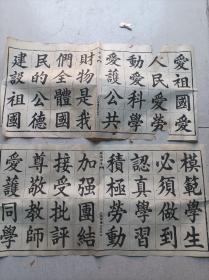 愛祖國愛
人民愛勞
動愛科學
愛護公共
財物是我
們全體國
民的公德
建設祖國
模範學生
必須做到
認真學習
積極勞動
加强團結
接受批評
尊敬教師
愛護同學